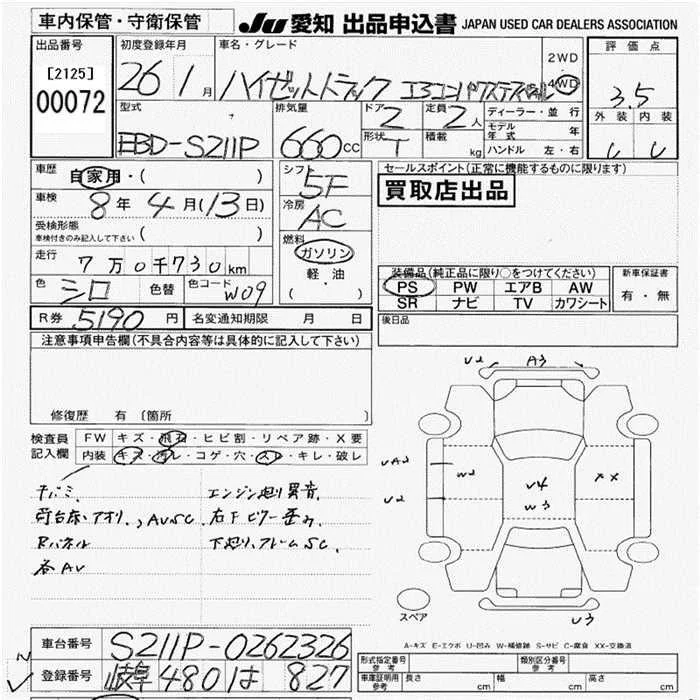 車内保管・守衛保管
JU 愛知 出品申込書 JAPAN USED CAR DEALERS ASSOCIATION
出品番号
[2125]
00072
初度登録年月
26 1月
車名・グレード
ハイゼットトラック
2WD
4WD
評価点
3.5
外装 内装
型式
EBD-S211P
排気量
660cc
ドア
2
定員
2人
形状
T
積載
kg
ディーラー・並行
モデル年式 年
ハンドル 左・右
車歴
自家用・( )
車検
8年 4月(13日)
受検形態
車検付きのみ記入して下さい ( )
走行
7万0千730km
色
シロ
色替
色コード
W09
シフト
5F
冷房
AC
燃料
ガソリン
軽・油
( )
セールスポイント(正常に機能するものに限ります)
買取店出品
装備品(純正品に限り○をつけてください)
PS PW エアB AW
SR ナビ TV カワシート
新車保証書
有・無
後日品
R券 5190円 名変通知期限 月 日
注意事項申告欄(不具合内容等は具体的に記入して下さい)
修復歴 有 〔箇所 〕
検査員
記入欄
FW キズ・飛石・ヒビ割・リペア跡・X要
内装 キズ・汚レ・コゲ・穴・スレ・キレ・破レ
エンジン廻り異音
荷台床、アオリ、AU SC.
右Fピラー歪み
Rパネル
下廻り、フレームSC.
各AU
U2 A3
UA2
U2
W2
U4
W3
XX
U3
スペア
A-キズ E-エクボ U-凹み W-補修跡 S-サビ C-腐食 XX-交換済
車台番号 S211P-0262326
登録番号 岐阜480は 827
形式指定番号 参考
類別区分番号 参考
車庫証明 参考
長さ cm 幅 cm 高さ cm